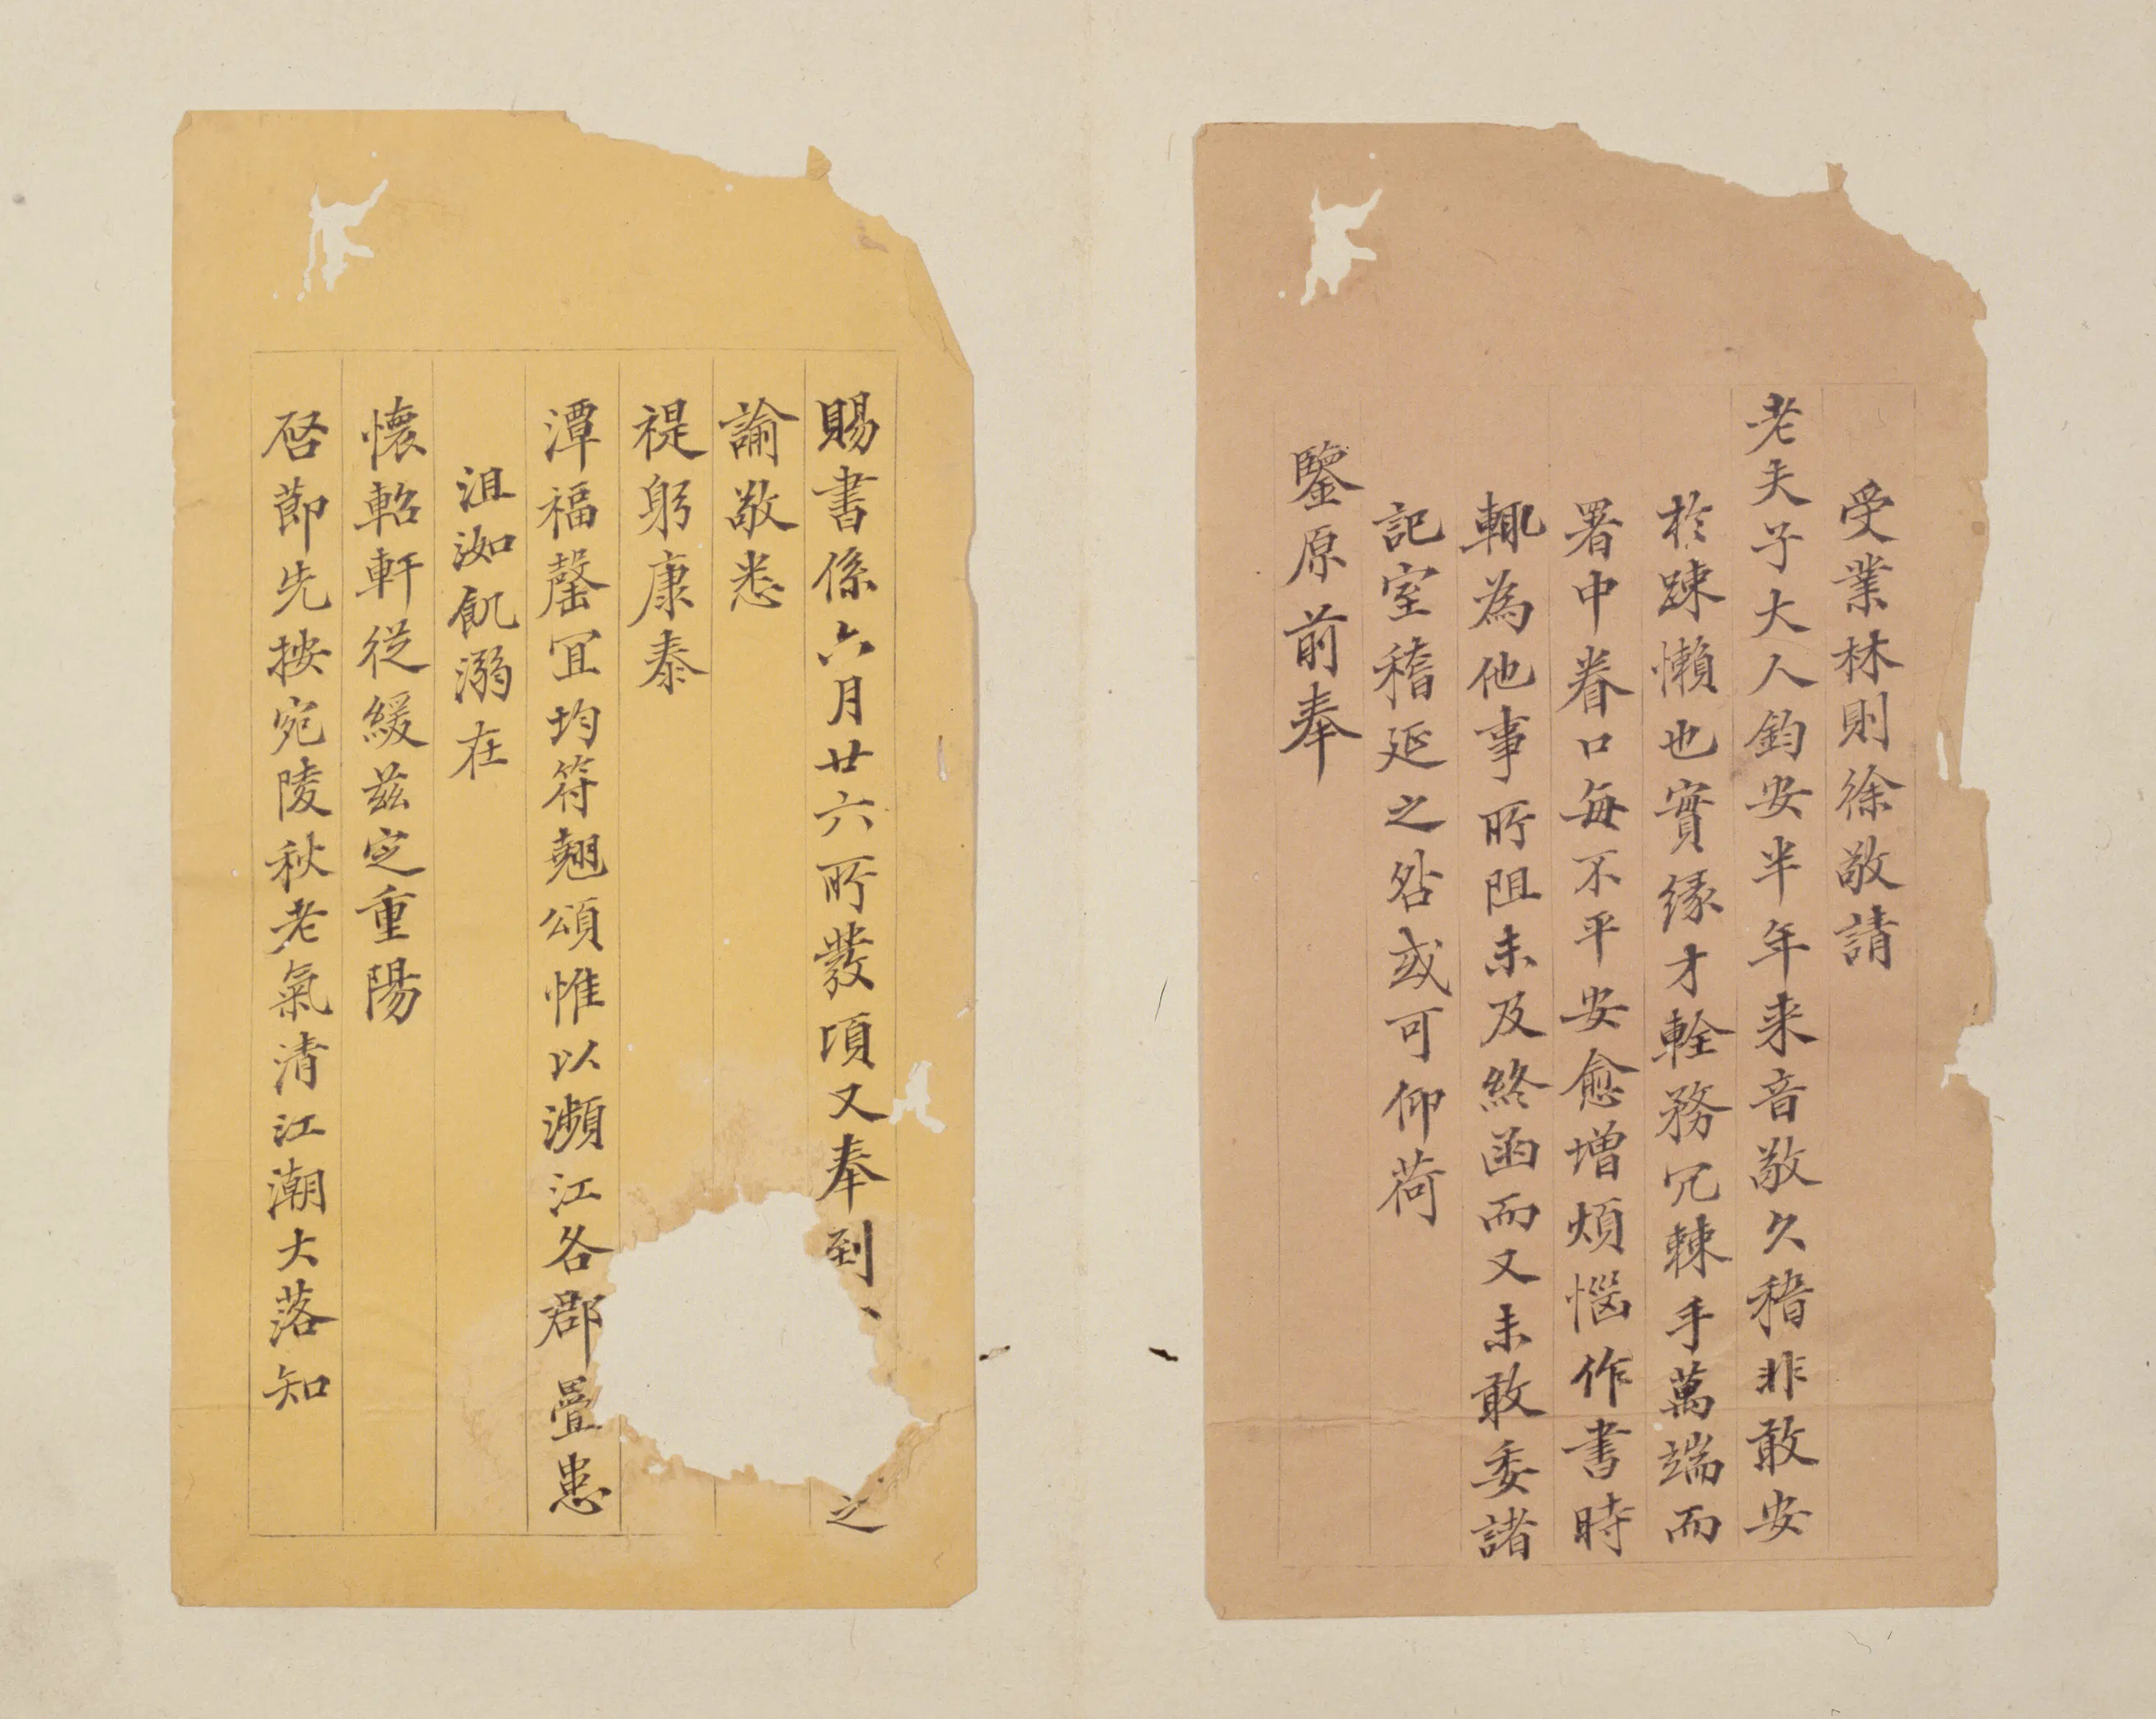 受業林則徐敬請
老夫子大人鈞安半年来音敬久稽非敢安
於踈懶也實緣才輇務冗棘手萬端而
署中眷口每不平安愈增煩惱作書時
輒為他事所阻未及終函而又未敢委諸
記室稽延之咎或可仰荷
鑒原前奉
賜書係六月廿六所發頃又奉到 之
諭敬悉
禔躬康泰
潭福罄冝均符翹頌惟以瀕江各郡疊患
沮洳飢溺在
懷軺軒從緩兹定重陽
啓節先按宛陵秋老氣清江潮大落知